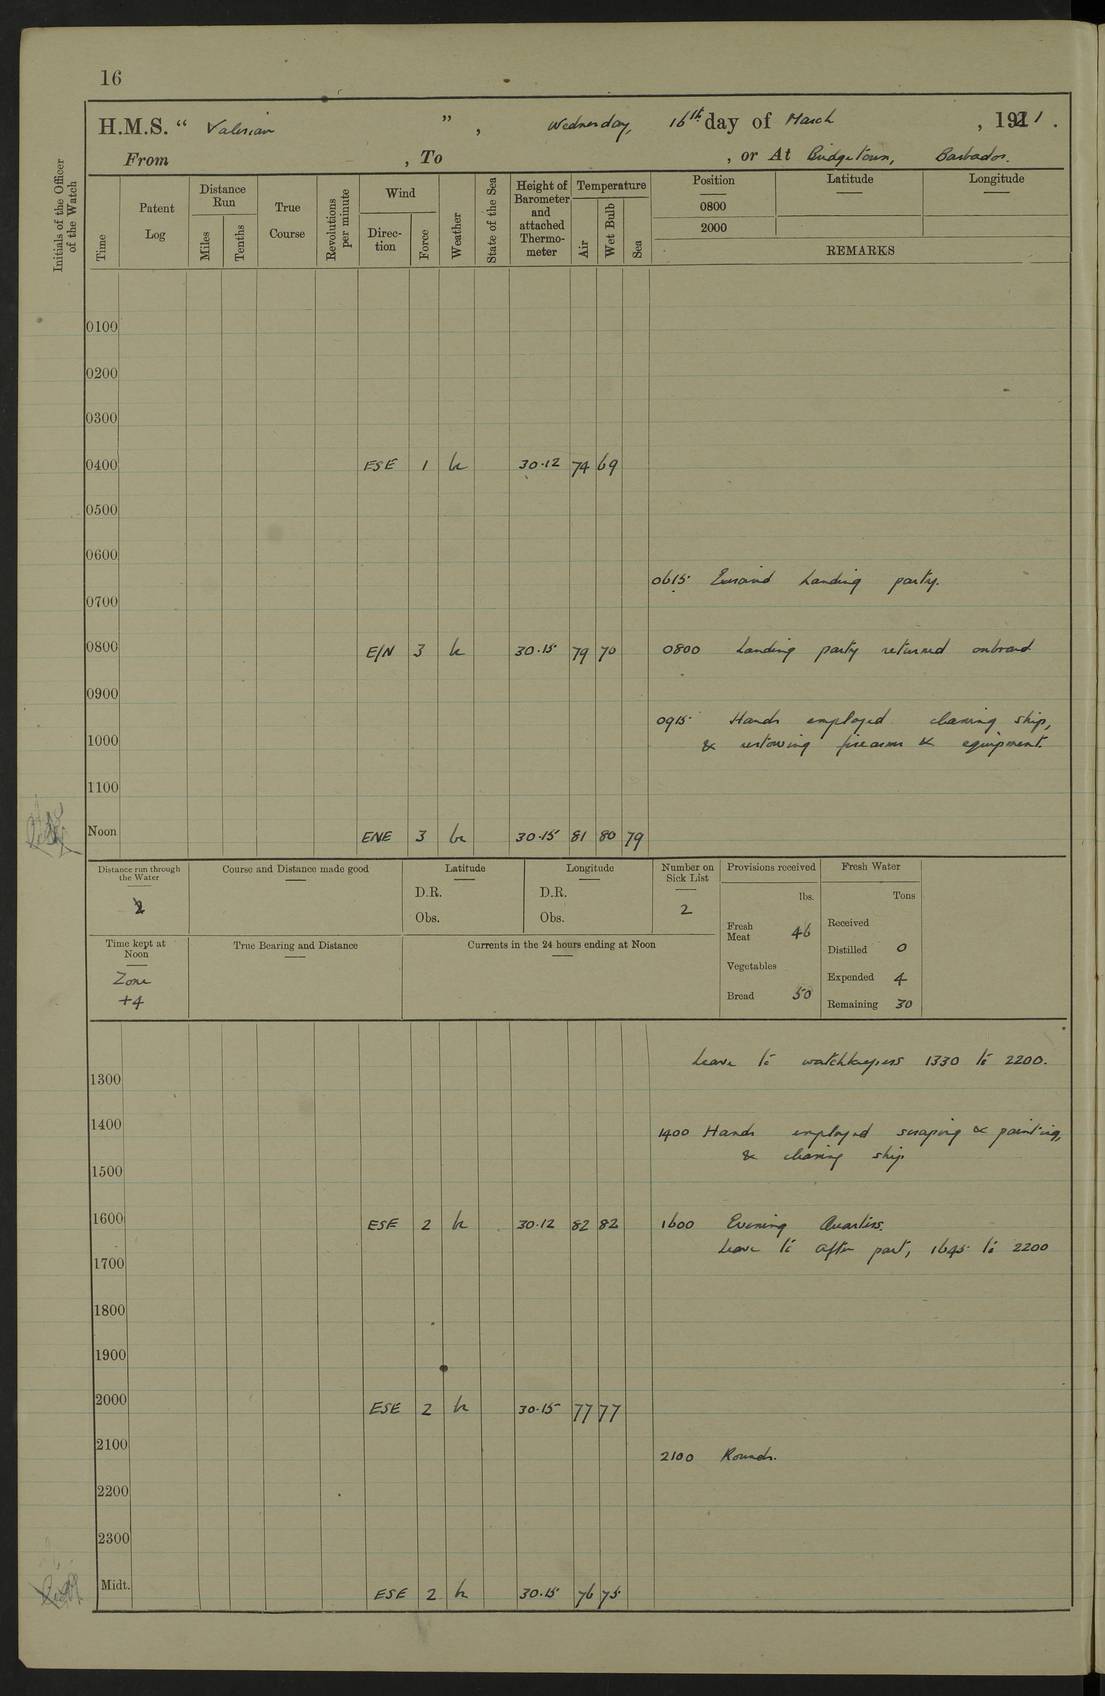 16
H.M.S. “ Valerian ” , Wednesday, 16th day of March , 1921 .
From , To , or At Bridgetown, Barbados.
Initials of the Officer of the Watch
Time
Patent Log
Distance Run
Miles
Tenths
True Course
Revolutions per minute
Wind
Direc-tion
Force
Weather
State of the Sea
Height of Barometer and attached Thermo-meter
Temperature
Air
Wet Bulb
Sea
Position
Latitude
Longitude
0800
2000
REMARKS
0100
0200
0300
0400 ESE 1 bc 30·12 74 69
0500
0600
0615 Landing party.
0700
0800 E/N 3 bc 30·15 79 70 0800 Landing party returned onboard
0900
0915 Hands employed cleaning ship,
1000 & restowing firearms & equipment.
1100
Noon ENE 3 bc 30·15 81 80 79
Distance run through the Water
Course and Distance made good
Latitude
Longitude
Number on Sick List
Provisions received
Fresh Water
D.R. D.R.
Obs. Obs.
2
lbs.
Tons
Fresh Meat 46
Received
Distilled 0
Vegetables
Expended 4
Bread 50
Remaining 30
Time kept at Noon
True Bearing and Distance
Currents in the 24 hours ending at Noon
Zone
+4
Leave to watchkeepers 1330 to 2200.
1300
1400 1400 Hands employed scraping & painting,
& cleaning ship
1500
1600 ESE 2 bc 30·12 82 82 1600 Evening Quarters.
Leave to after part, 1645 to 2200
1700
1800
1900
2000 ESE 2 bc 30·15 77 77
2100 2100 Rounds.
2200
2300
Midt. ESE 2 bc 30·15 76 75